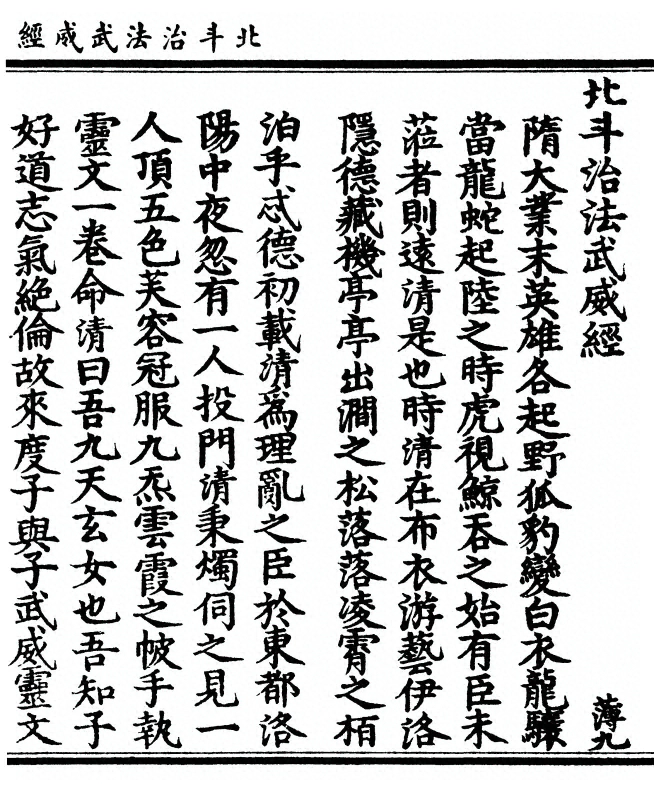 北斗治法武威經
北斗治法武威經 薄九
隋大業末英雄各起野狐豹變白衣龍驤
當龍蛇起陸之時虎視鯨吞之始有臣未
蒞者則遠清是也時清在布衣游藝伊洛
隱德藏機亭亭出澗之松落落凌霄之栢
洎乎忒德初載清爲理亂之臣於東都洛
陽中夜忽有一人投門清秉燭伺之見一
人頂五色芙容冠服九炁雲霞之帔手執
靈文一卷命清曰吾九天玄女也吾知子
好道志氣絕倫故來度子與子武威靈文